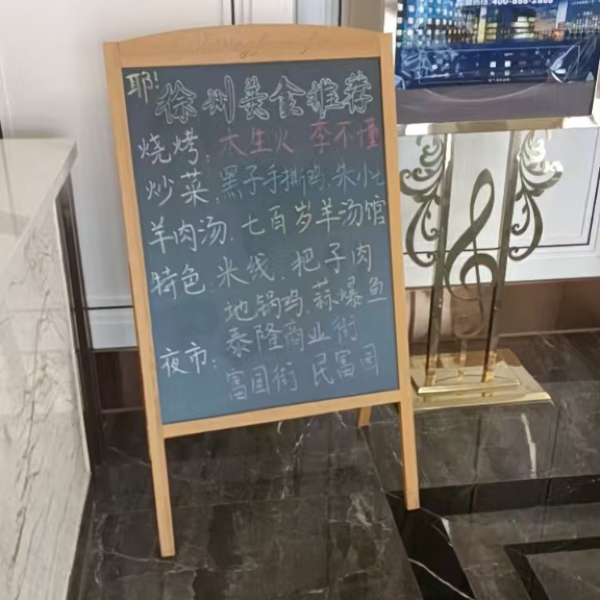 耶!
徐州美食推荐
烧烤: 木生火 李不懂
炒菜: 黑子手撕鸡. 朱小七
羊肉汤. 七百岁羊汤馆
特色: 米线. 把子肉
地锅鸡. 蒜爆鱼
夜市: 泰隆商业街
富国街 民富园